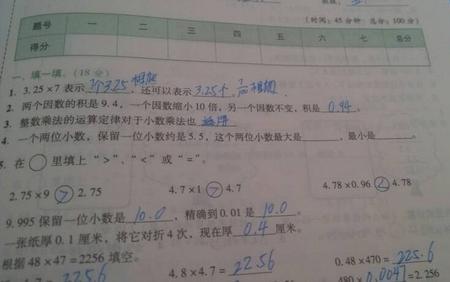 (时间:45分钟 总分:100分)
题号 一 二 三 四 五 六 七 总分
得分
一、填一填。(18分)
1. 3.25×7表示7个3.25相加,还可以表示3.25个7相加。
2. 两个因数的积是9.4,一个因数缩小10倍,另一个因数不变,积是0.94。
3. 整数乘法的运算定律对于小数乘法也适用
4. 一个两位小数,保留一位小数约是5.5,这个两位小数最大是______,最小是______。
5. 在○里填上“>”、“<”或“=”。
2.75×9 > 2.75 4.7×1 > 4.7 4.78×0.96 < 4.78
9.995保留一位小数是10.0,精确到0.01是10.0。
一张纸厚0.1厘米,将它对折4次,现在厚0.4厘米。
根据48×47=2256填空。
4.8×4.7=22.56 0.48×470=225.6
480×0.0047=2.256